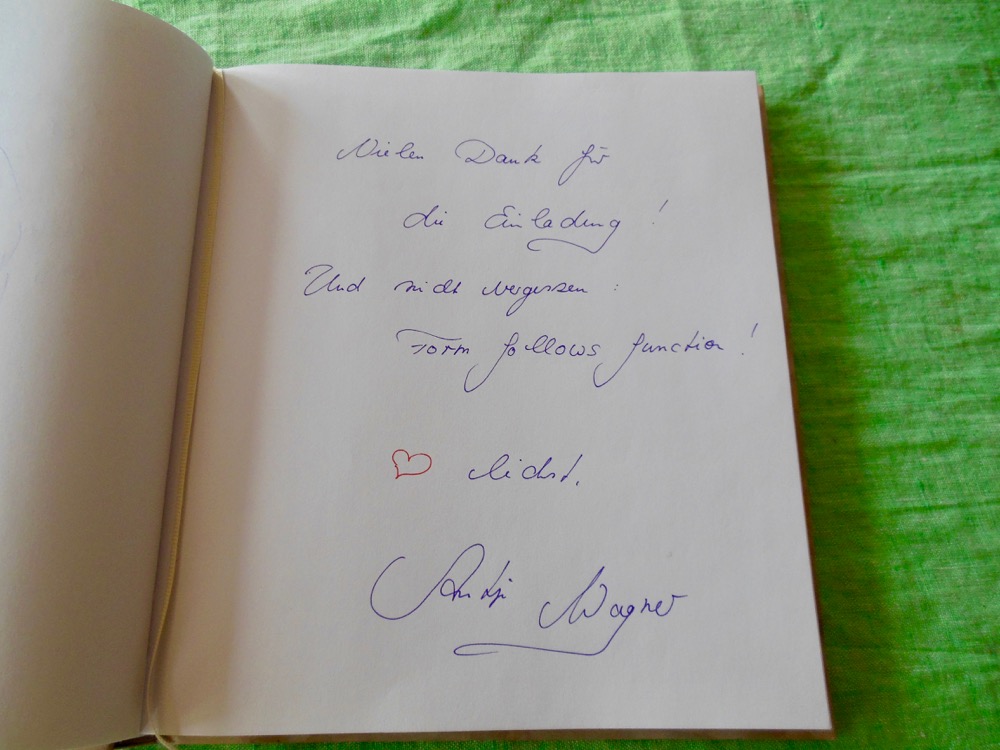 Vielen Dank für
die Einladung!
Und nicht vergessen:
Form follows function!
♡ lichst,
Antje Wagner